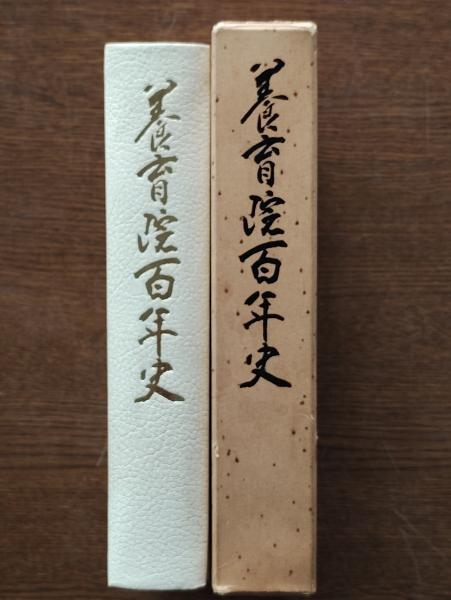 養育院百年史
養育院百年史